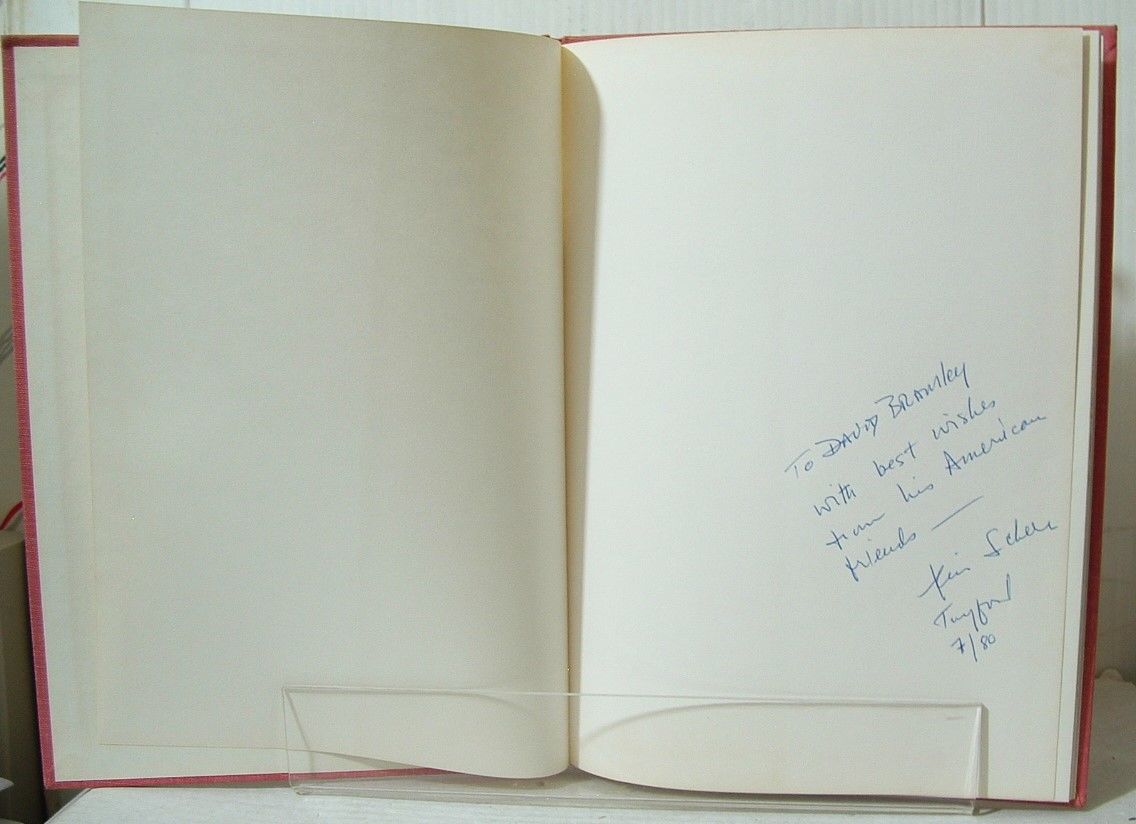 To DAVID BRAMLEY
with best wishes
from his American
friends —
Twyford
7/80